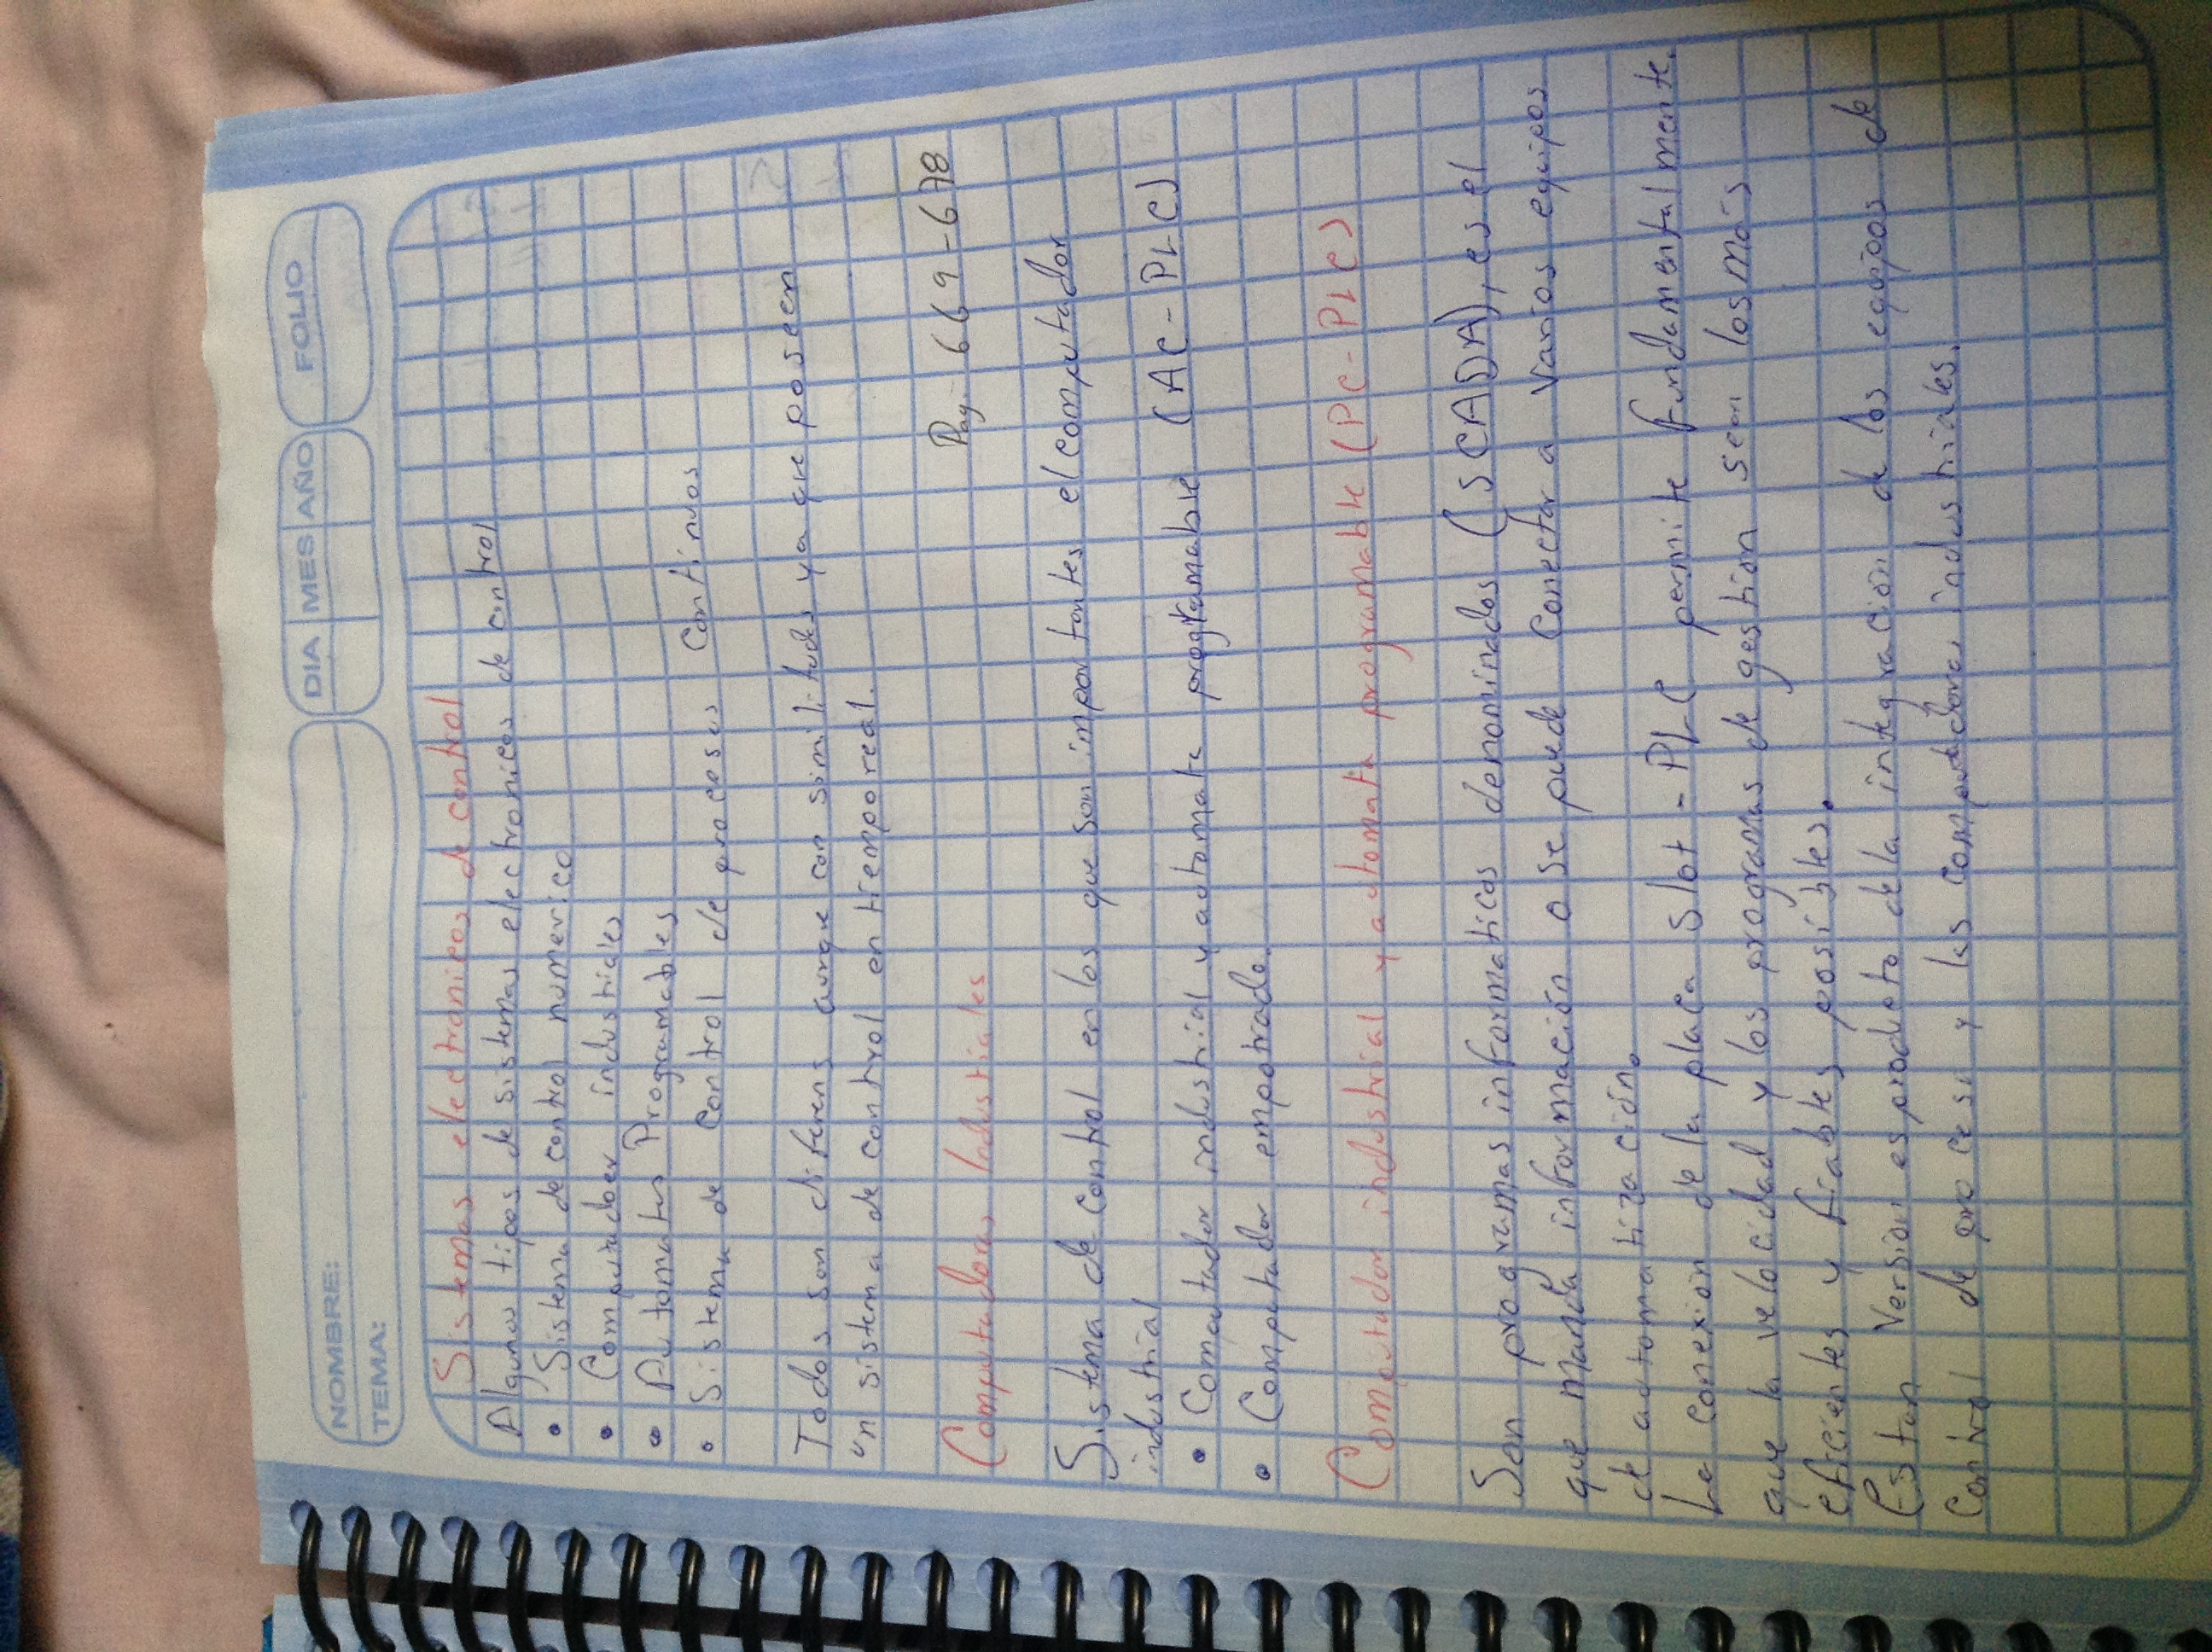 NOMBRE:
TEMA:
DIA MES AÑO
FOLIO
Sistemas electronicos de control
Algunos tipos de sistemas electronicos de control
• Sistema de control numerico
• Computadoer industriales
• Automatas Programables
• Sistema de control de procesos continuos
Todos son diferens aunque con similitudes ya que poseen
un sistema de control en tiempo real.
Computadoras Industriales
Pag. 669-678
Sistema de control en los que son importantes el computador
industrial
• Computador industrial y automata programable (AC-PLC)
• Computador empotrado.
Computador industrial y automata programable (PC-PLC)
Son programas informaticos denominados (SCADA), es el
que manda información o se puede conectar a varios equipos
de automatización.
La conexión de la placa slot-PLC permite fundamentalmente.
que la velocidad y los programas de gestión sean los más
eficientes y fiables posibles.
Estan Version es producto de la integración de los equipos de
control de proceso y las computadoras industriales.